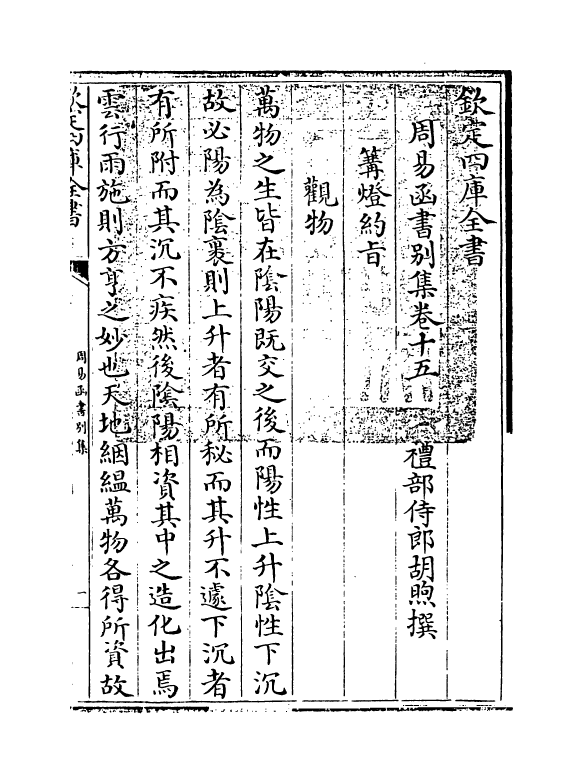 欽定四庫全書
周易函書别集卷十五 禮部侍郎胡煦撰
篝燈約旨
觀物
萬物之生皆在陰陽既交之後而陽性上升陰性下沉
故必陽為陰裹則上升者有所秘而其升不遽下沉者
有所附而其沉不疾然後陰陽相資其中之造化出焉
雲行雨施則方亨之妙也天地絪縕萬物各得所資故
欽定四庫全書
周易函書别集
一